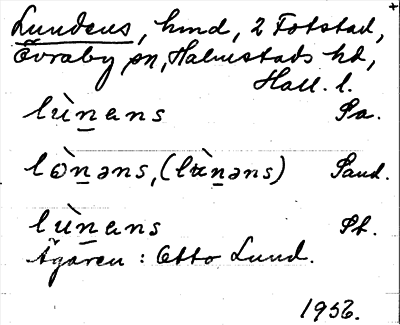 Lundens, hmd, 2 Tofstad,
Övraby sn, Halmstads hd,
Hall. l.
lùnans Sa.
lònəns, (lùnəns) Sand.
lùnans Sk.
Ägaren: Otto Lund.
1956.